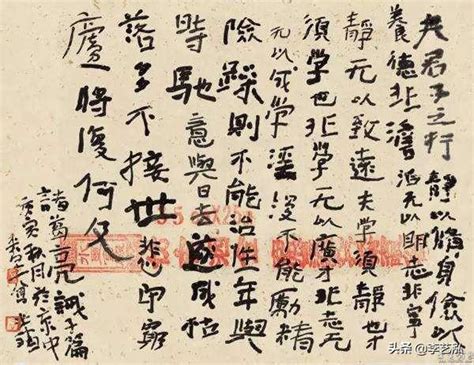 夫君子之行靜以脩身儉以
養德非澹泊无以明志非寧
靜无以致遠夫学須靜也才
須学也非学无以廣才非志无
无以成学淫漫不能勵精
險躁則不能治性年與
時馳意與日去遂成枯
落多不接世悲守窮
廬將復何及
諸葛亮誡子篇
庚寅秋月於京中
头条@李艺泓